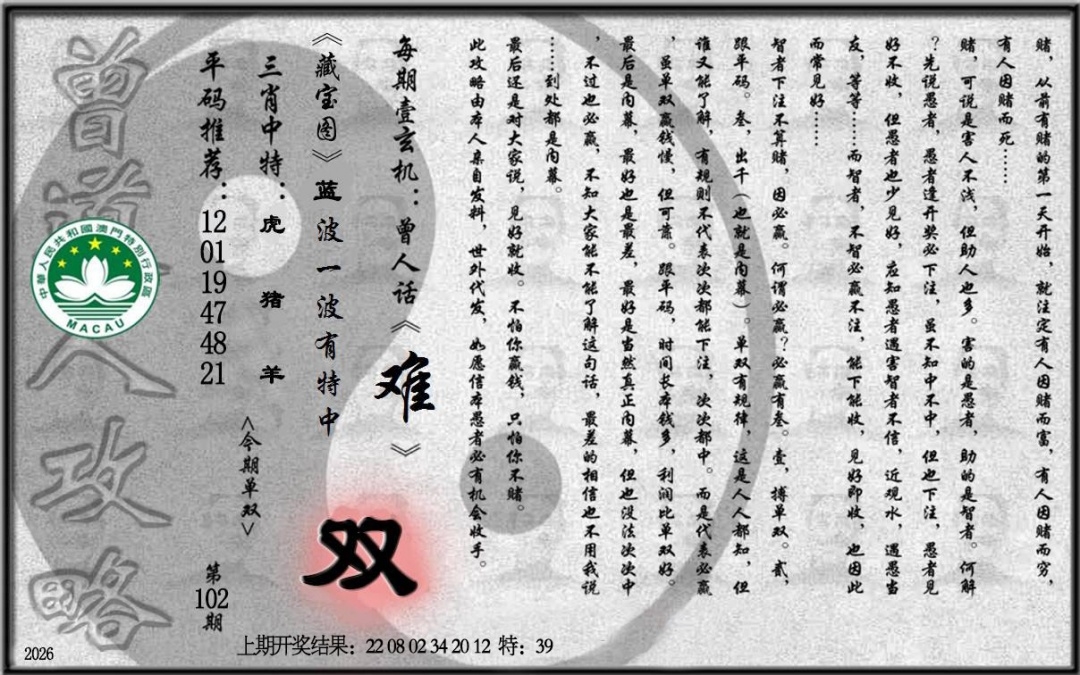 赌，从前有赌的第一天开始，就注定有人因赌而富，有人因赌而穷，
有人因赌而死……
赌，可说是害人不浅，但助人也多。害的是愚者，助的是智者。何解
？先说愚者，愚者逢开奖必下注，虽不知中不中，但也下注，愚者见
好不收，但愚者也少见好，应知愚者遇害智者不信，近观水，遇愚当
友，等等……而智者，不智必赢不注，能下能收，见好即收，也因此
而常见好……
智者下注不算赌，因必赢。何谓必赢？必赢有叁。壹，搏单双。贰，
跟平码。叁，出千（也就是内幕）。单双有规律，这是人人都知，但
谁又能了解，有规则不代表次次都能下注，次次都中。而是代表必赢
，虽单双赢钱慢，但可靠。跟平码，时间长本钱多，利润比单双好。
最后是内幕，最好也是最差，最好是当然真正内幕，但也没法次次中
，不过也必赢，不知大家能不能了解这句话，最差的相信也不用我说
……到处都是内幕。
最后还是对大家说，见好就收。不怕你赢钱，只怕你不赌。
此攻略由本人亲自发料，世外代发，如愿信本愚者必有机会收手。
每期壹玄机：曾人话《难》
《藏宝图》蓝波一波有特中
双
三肖中特：虎 猪 羊
<今期单双>
平码推荐：12 01 19 47 48 21
第102期
曾道人攻略
中華人民共和國澳門特別行政區
MACAU
上期开奖结果：22 08 02 34 20 12 特：39
2026